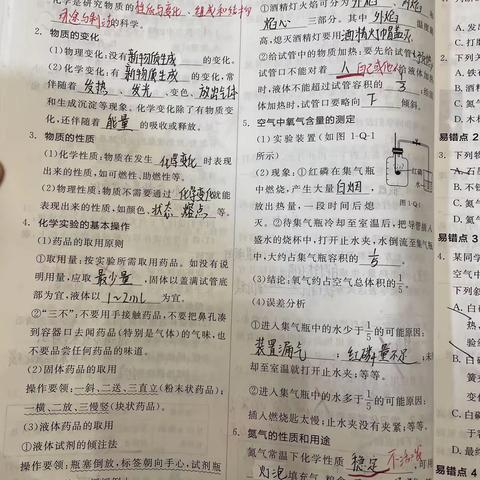 化学是研究物质的性质与变化、组成和结构
的科学。
2. 物质的变化
(1)物理变化:没有新物质生成的变化。
(2)化学变化:有新物质生成的变化,常
伴随着发热、发光、变色、放出气体
和生成沉淀等现象。化学变化除了有物质变
化,还伴随着能量的吸收或释放。
3. 物质的性质
(1)化学性质:物质在发生化学变化时表现
出来的性质,如可燃性、助燃性等。
(2)物理性质:物质不需要通过化学变化就能
表现出来的性质,如颜色、状态、熔点等。
4. 化学实验的基本操作
(1)药品的取用原则
①取用量:按实验所需取用药品。如没有说
明用量,应取最少量,固体以盖满试管底
部为宜,液体以1~2mL为宜。
②“三不”:不要用手接触药品,不要把鼻孔凑
到容器口去闻药品(特别是气体)的气味,也
不要品尝任何药品的味道。
(2)固体药品的取用
操作要领:一斜、二送、三直立(粉末状药品);
一横、二放、三慢竖(块状药品)。
(3)液体药品的取用
①液体试剂的倾注法
操作要领:瓶塞倒放,标签朝向手心,试剂瓶
①酒精灯火焰可分为
焰心三部分。其中外焰温度最
高,熄灭酒精灯要用酒精灯帽盖灭。
②给试管中的物质加热:要先给试管
试管口不能对着人自己或他人给液体加
时,液体不能超过试管容积的
体加热时,试管口要略向下倾斜。
5. 空气中氧气含量的测定
(1)实验装置(如图 1-Q-1
所示)
(2)现象:①红磷在集气瓶
中燃烧,产生大量白烟,
放出热量,一段时间后熄
图 1-Q-1
红磷
水
灭。②待集气瓶冷却至室温后,把导管插入
盛水的烧杯中,打开止水夹,水倒流至集气瓶
中,大约占集气瓶容积的1/5。
(3)结论:氧气约占空气总体积的1/5。
(4)误差分析
①进入集气瓶中的水少于1/5的可能原因:
装置漏气;红磷量不足;未
却至室温就打开止水夹;等等。
②进入集气瓶中的水多于1/5的可能原因:
插入燃烧匙太慢;止水夹没有夹紧;等等。
6. 氮气的性质和用途
氮气常温下化学性质稳定不活泼可用
灯泡填充气
A. 发
B. 打
C. 用
D. 加
2. 下列关
A. 铁
B. 酒
C. 氮
D. 木
易错点 2
3. 下列物
B. 氮
C. 氮
D. 氮气
易错点 3
4. 某同学
空气中
A. 白磷
B. 白磷
C. 白磷
易错点 4